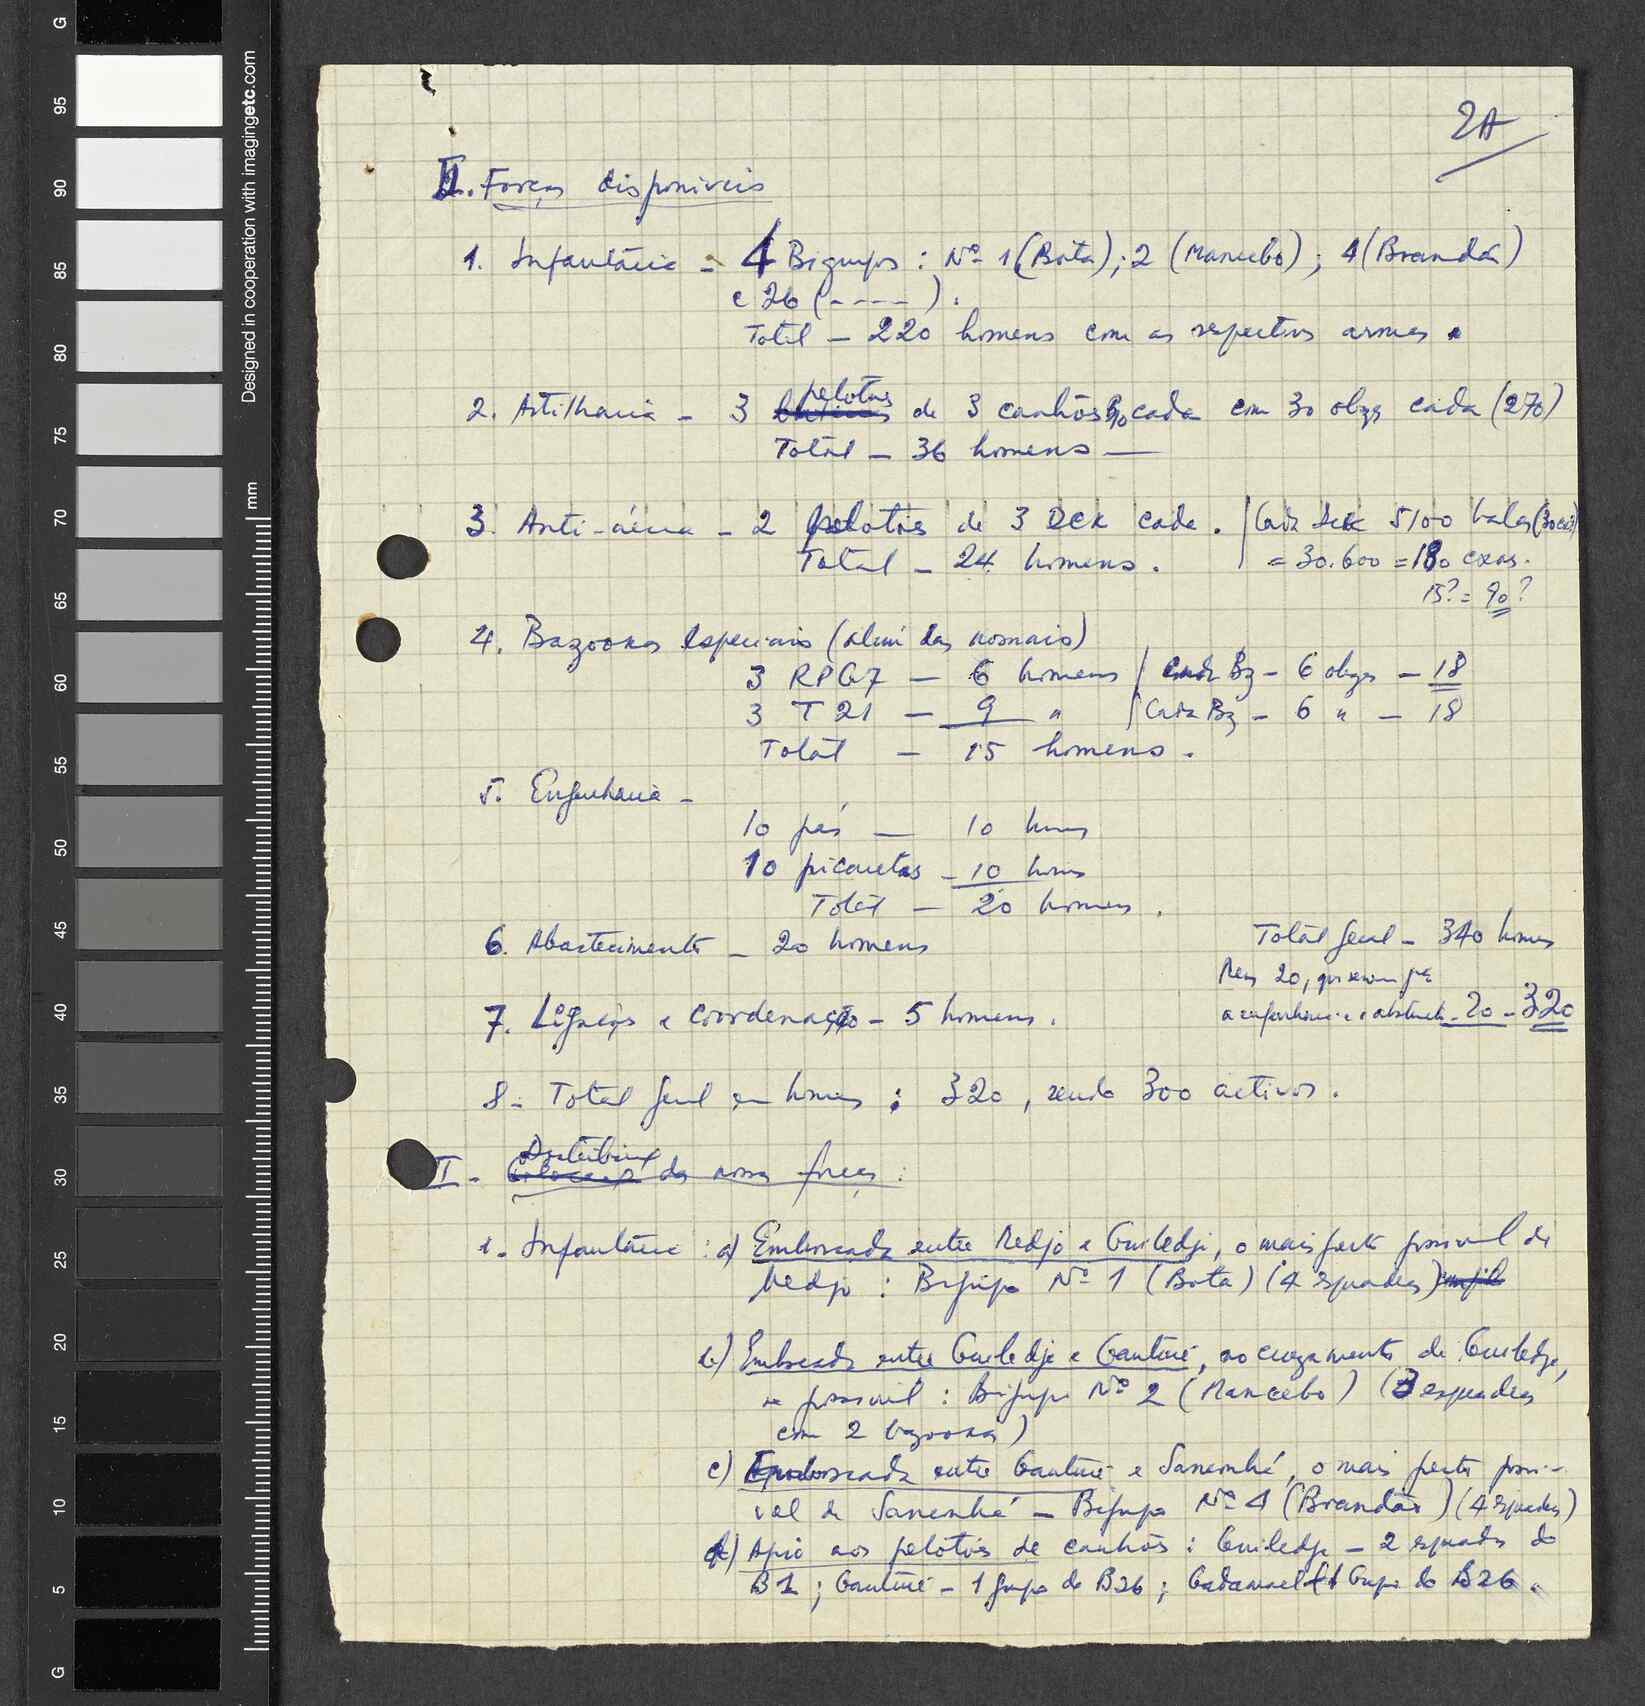 2A
II. Forças disponiveis
1. Infantaria - 4 Bigrupos : Nº 1 (Bota); 2 (Mancebo) ; 4 (Brandão)
e 26 (----) .
Total - 220 homens com as respectivas armas.
2. Artilharia - 3 pelotões de 3 canhões cada com 30 obuzes cada (270)
Total - 36 homens —
3. Anti-aérea - 2 pelotões de 3 DCK cada . Cada DCK 5100 balas (30 cxas)
Total - 24 homens . = 30.600 = 180 cxas.
15? = 90 ?
4. Bazookas especiais (além das normais)
3 RPG7 — 6 homens / Cada Bz - 6 obuzes - 18
3 T 21 — 9 " / Cada Bz - 6 " - 18
Total — 15 homens .
5. Engenharia -
10 pás — 10 homens
10 picaretas - 10 homens
Total — 20 homens .
6. Abastecimento - 20 homens
Total geral - 340 homens
Menos 20, que seriam para
a engenharia e o abastecimento - 20 - 320
7. Ligação e coordenação - 5 homens .
8 - Total geral em homens : 320 , sendo 300 activos .
II - Distribuição das nossas forças :
1. Infantaria : a) Emboscada entre Medjo e Guiledje, o mais perto possivel de
Medjo : Bigrupo Nº 1 (Bota) (4 esquadras)
b) Emboscada entre Guiledje e Ganturé, no cruzamento de Guiledje,
se possivel : Bigrupo Nº 2 (Mancebo) (3 esquadras
com 2 bazookas)
c) Emboscada entre Ganturé e Sanconhá, o mais perto possi-
vel de Sanconhá - Bigrupo Nº 4 (Brandão) (4 esquadras)
d) Apoio aos pelotões de canhões : Guiledje - 2 esquadras do
B2 ; Ganturé - 1 grupo do B26 ; Gadamael (1 Grupo do B26 .